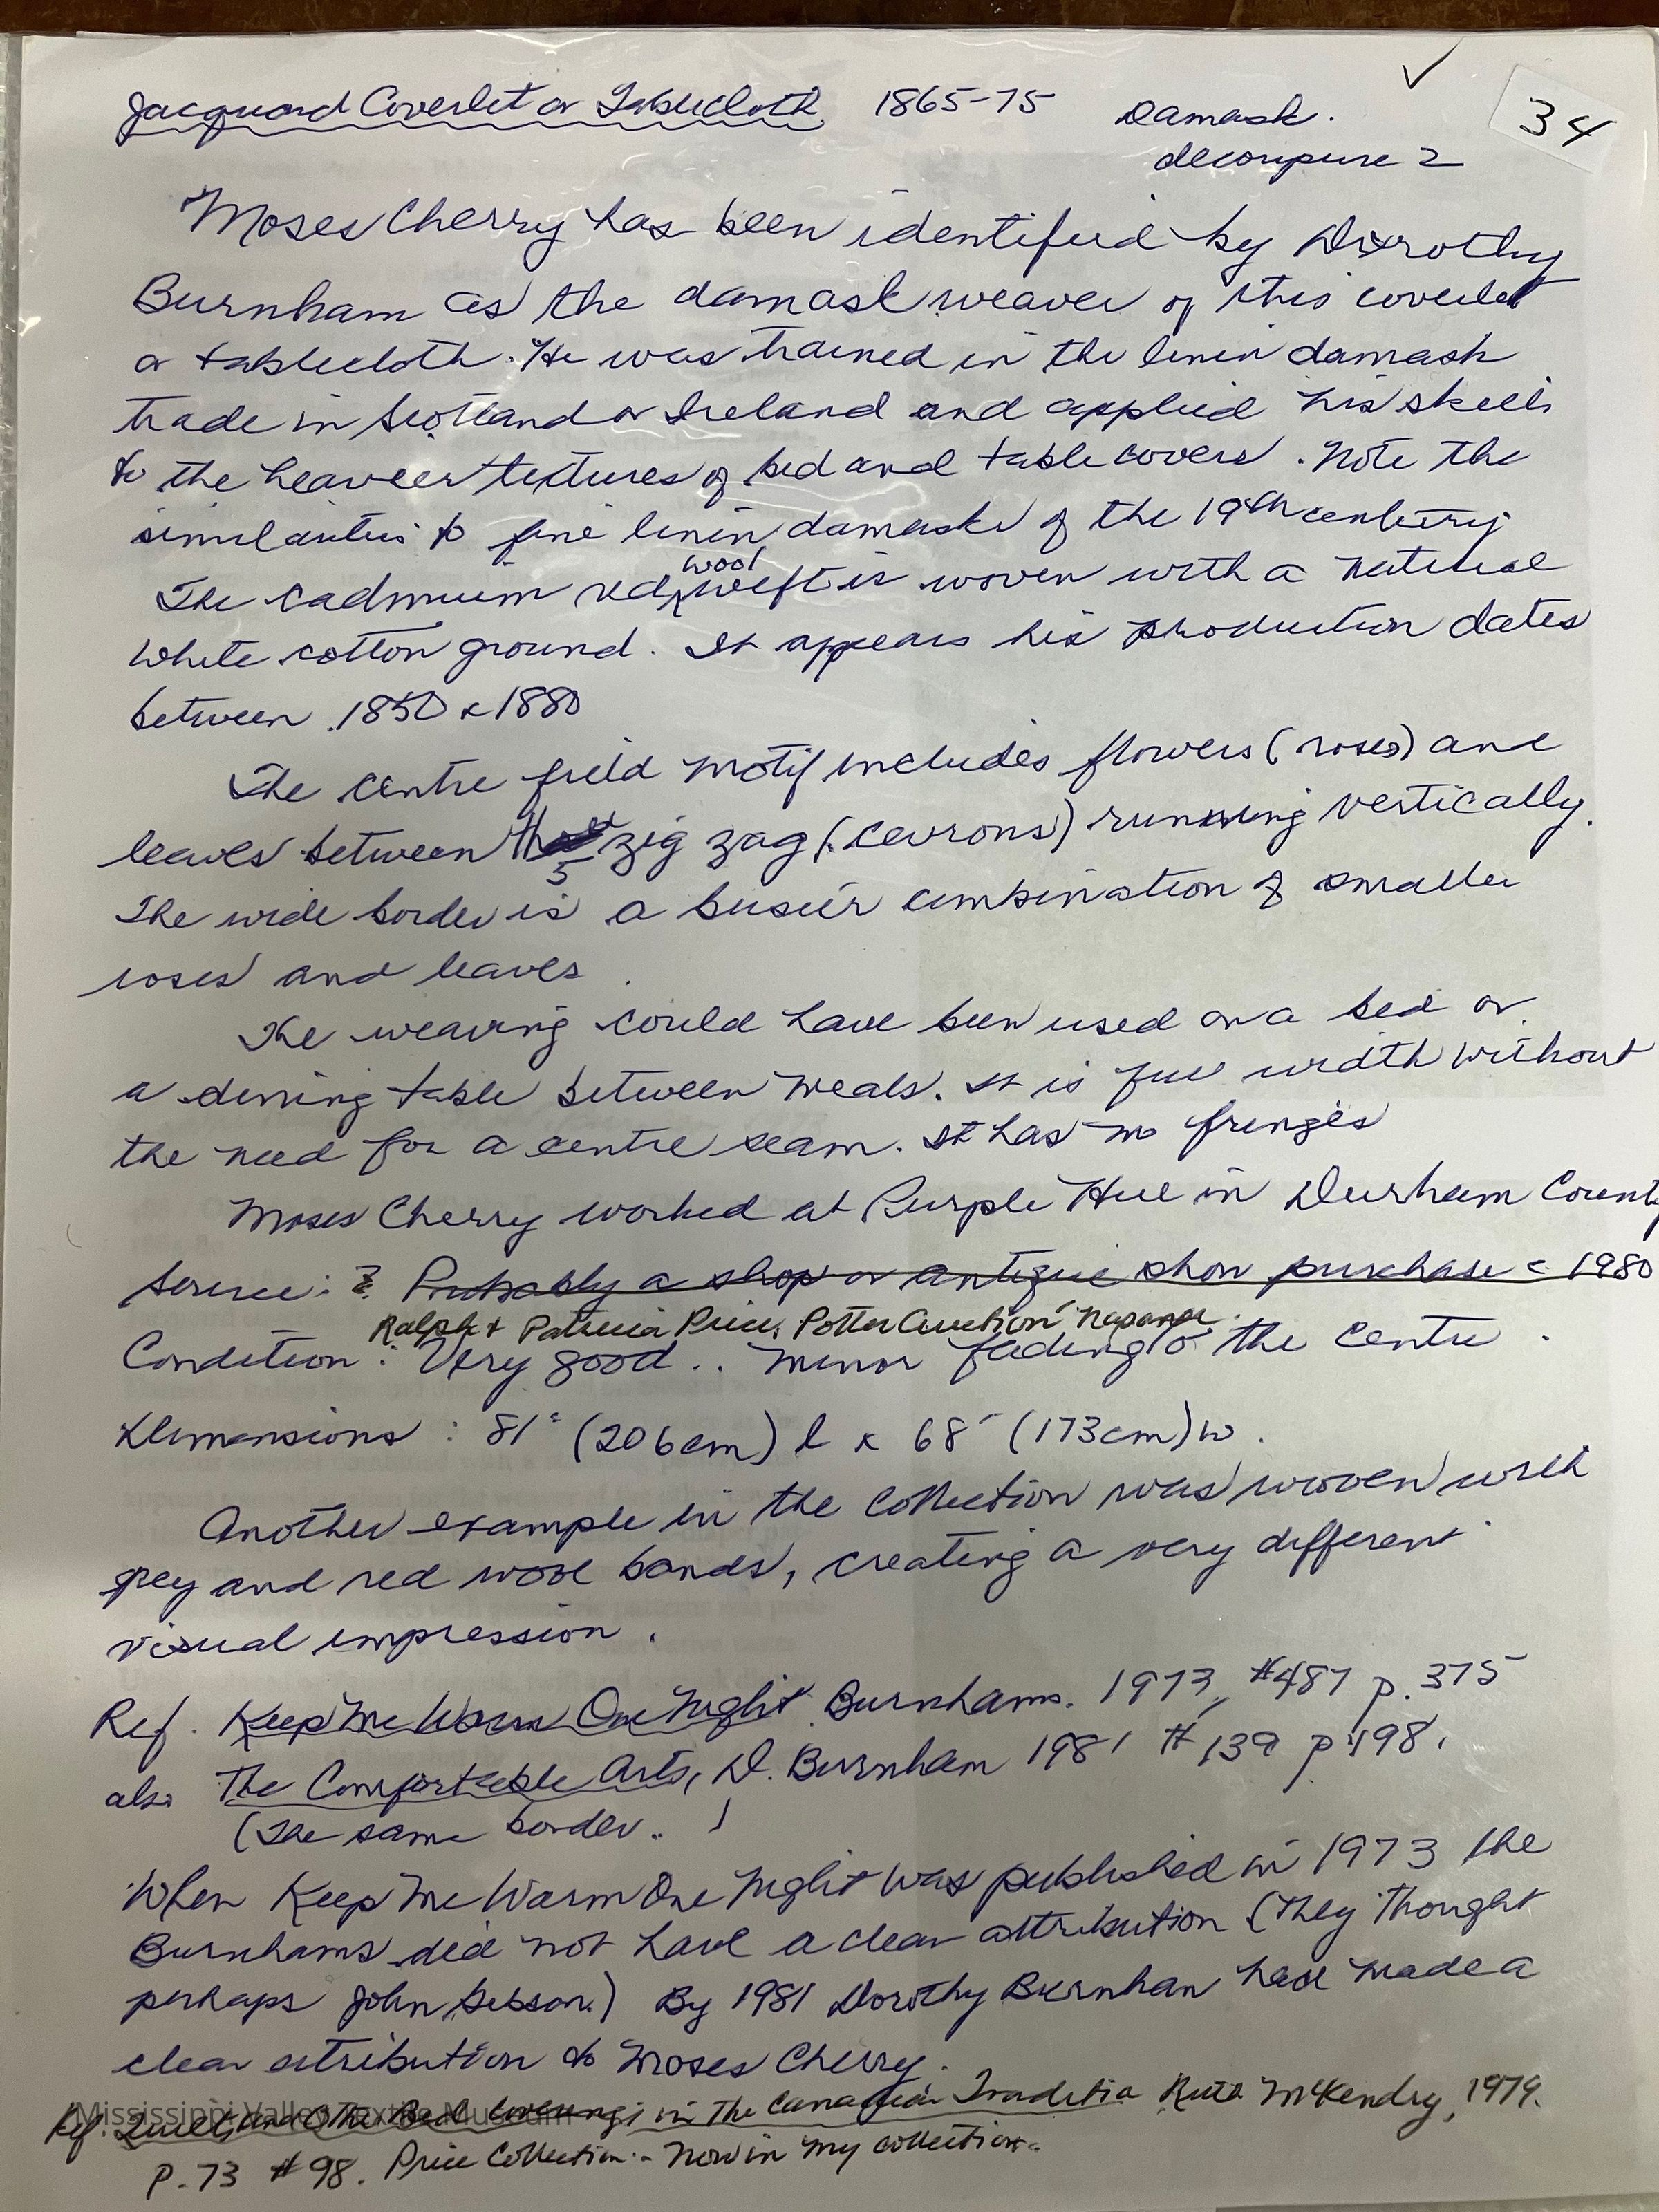 Jacquard Coverlet or Tablecloth 1865-75 Damask.
34
decoupure 2
Moses Cherry has been identified by Dorothy
Burnham as the damask weaver of this coverlet
or tablecloth. He was trained in the linen damask
trade in Scotland or Ireland and applied his skills
to the heavier textures of bed and table covers. Note the
similarities to fine linen damasks of the 19th century
wool
The cadmium red weft is woven with a natural
white cotton ground. It appears his production dates
between 1850 & 1880
The centre field motif includes flowers (roses) and
leaves between zig zag (cevrons) running vertically.
5
The wide border is a busier combination of smaller
roses and leaves
The weaving could have been used on a bed or
a dining table between meals. It is full width without
the need for a centre seam. It has no fringes
Moses Cherry worked at Purple Hill in Durham County
Source: ? Probably a shop or antique show purchase c 1980
Ralph + Patricia Price, Potter Auction Napanee.
Condition: Very good.. minor fading to the centre.
Dimensions: 81" (206cm) l x 68" (173cm) w.
Another example in the collection was woven with
grey and red wool bands, creating a very different
visual impression.
Ref. Keep Me Warm One Night Burnhams. 1973, #487 p. 375
also The Comfortable Arts, D. Burnham 1981 #139 p 198.
(The same border.. )
When Keep Me Warm One Night was published in 1973 the
Burnhams did not have a clear attribution (they thought
perhaps John Gibson.) By 1981 Dorothy Burnham had made a
clear attribution to Moses Cherry.
Mississippi Valley Textile Museum
Ref. Quilts and Other Bed Coverings in the Canadian Tradition Ruth McKendry, 1979.
P. 73 #98. Price Collection - Now in my collection.